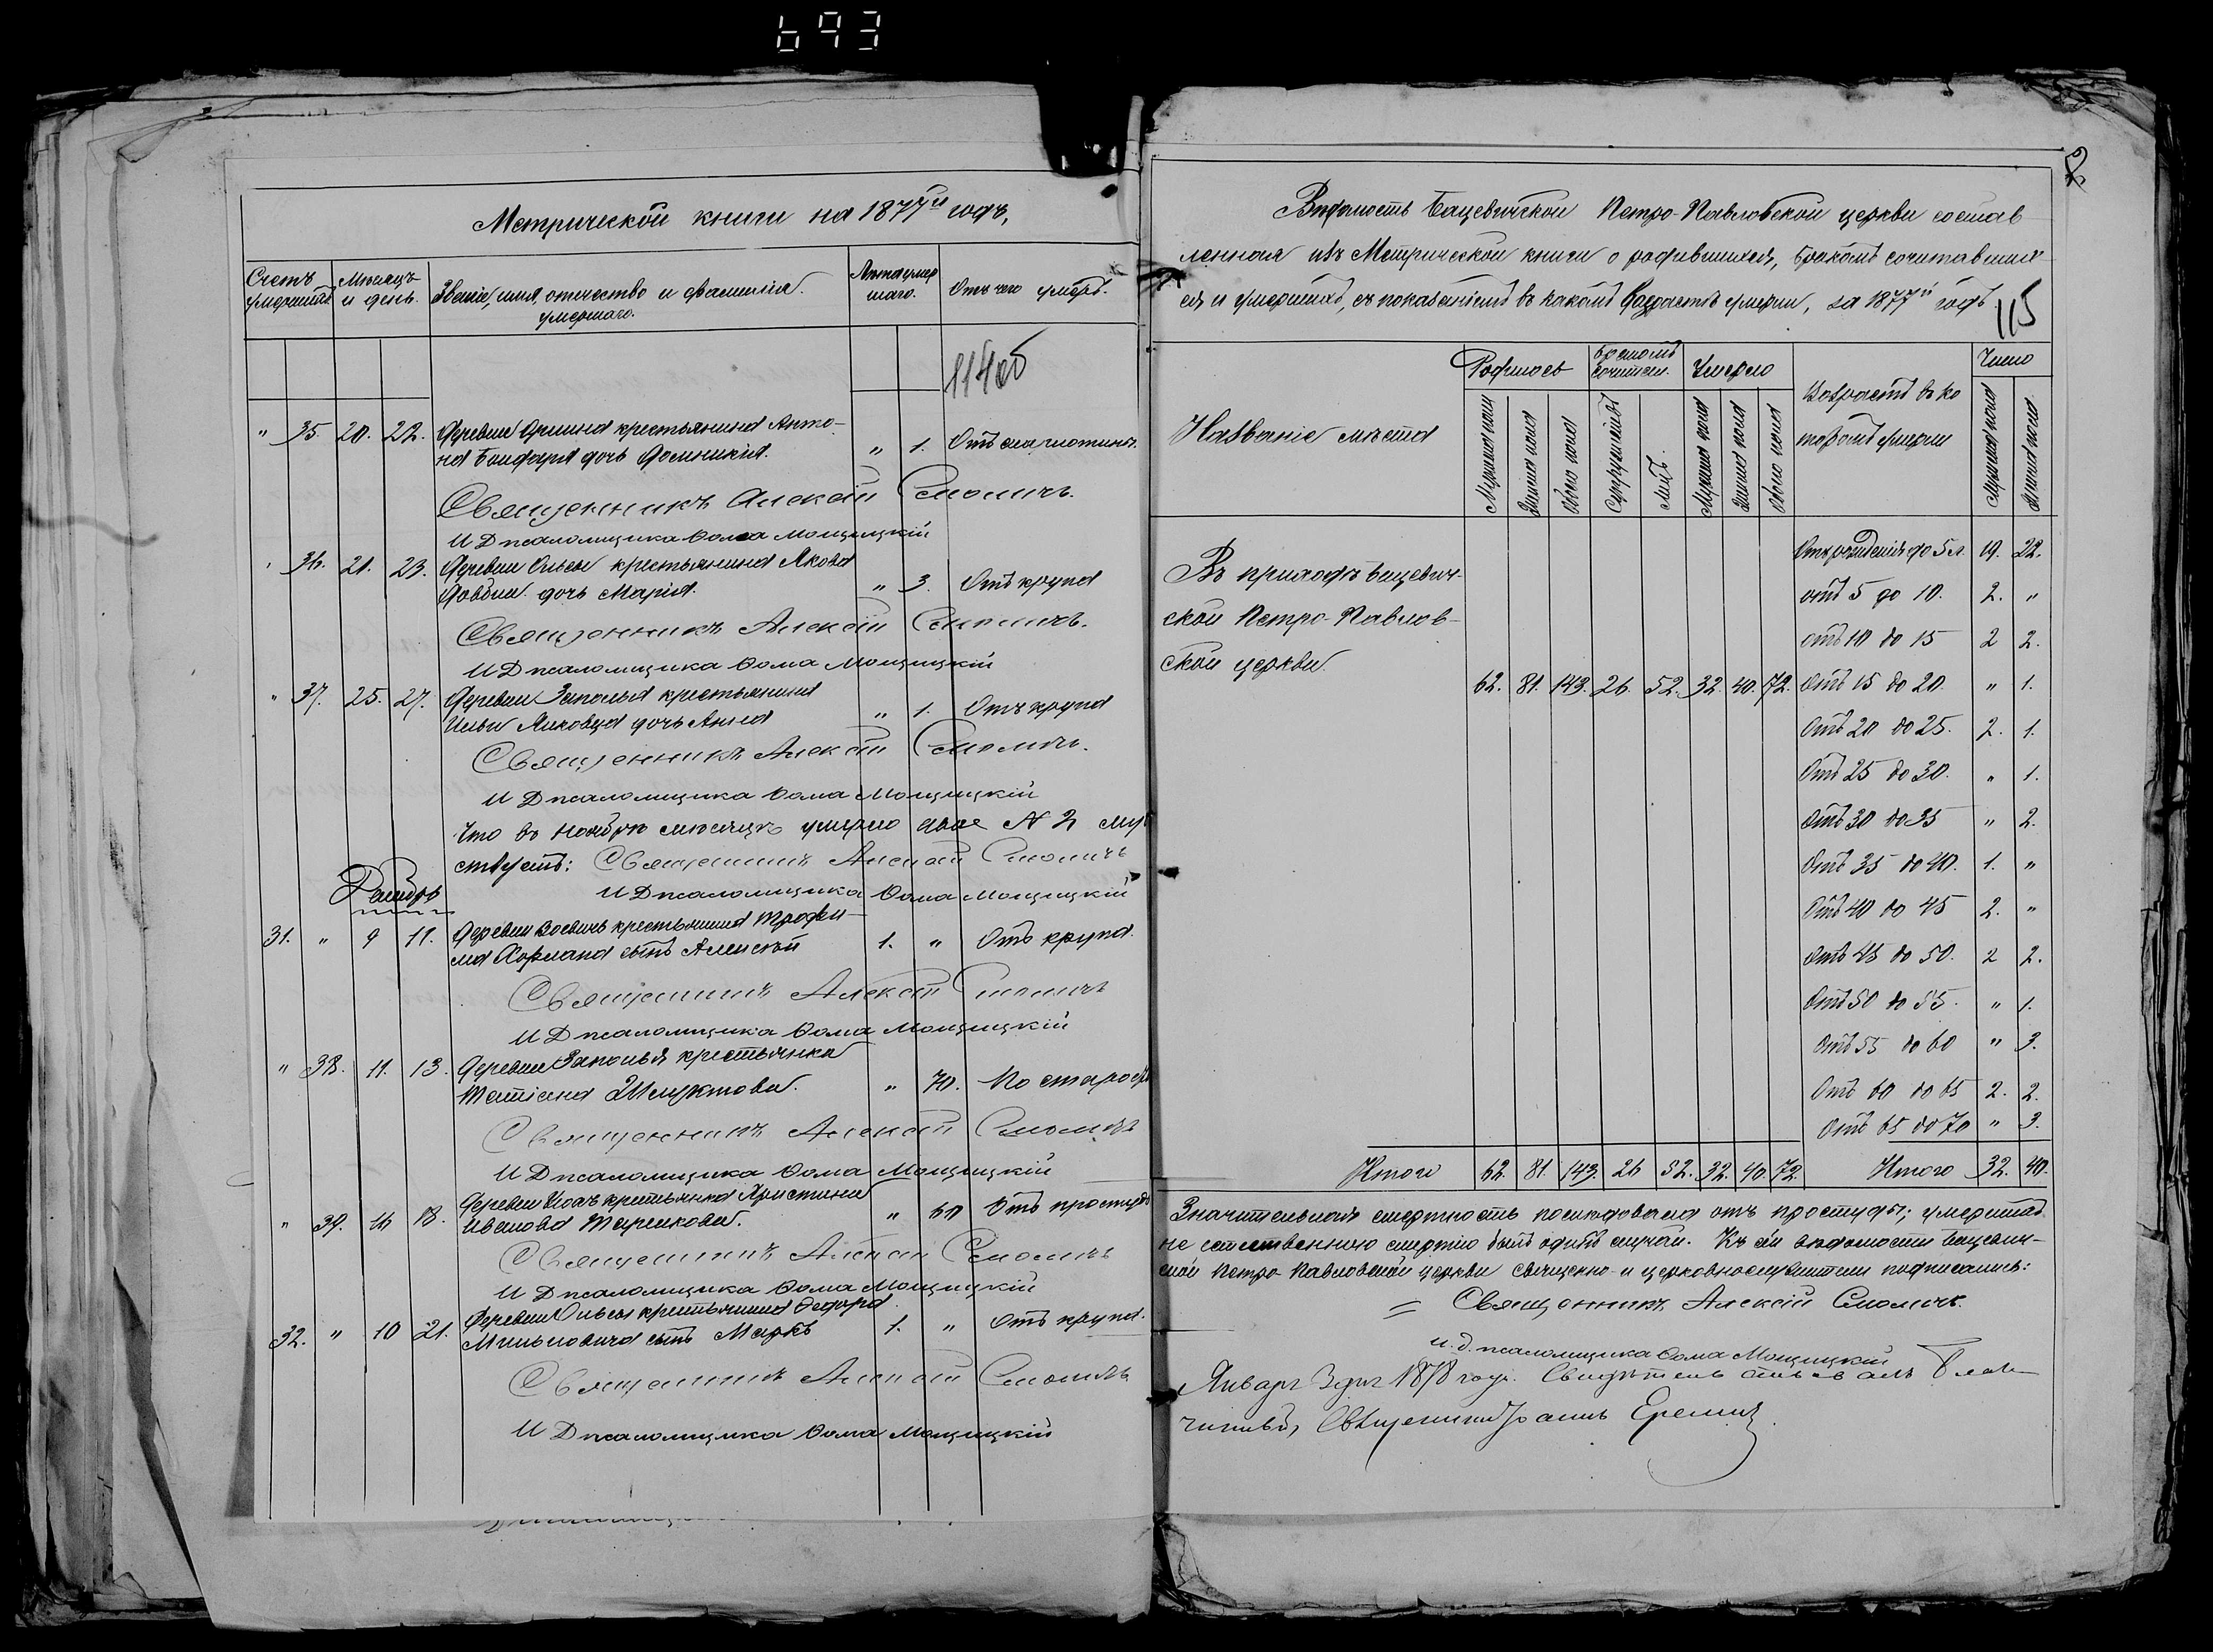 693
Метрической книги на 1877й годъ,
Счетъ умершихъ
Мѣсяцъ и день.
Званіе, имя, отчество и фамилія умершаго.
Лѣта умершаго.
Отъ чего умеръ.
114об
" 35. 20. 22. Деревни крестьянина Анто-
на Бондаря дочь Домникія. " 1. Отъ
Священникъ Алексій Смоличъ.
И Д псаломщика Ѳома Мощицкій
" 36. 21. 23. Деревни Ольсы крестьянина Якова
дочь Марія. " 3. Отъ крупа
Священникъ Алексій Смоличъ.
И Д псаломщика Ѳома Мощицкій
" 37. 25. 27. Деревни Заполья крестьянина
Ильи Яковца дочь Анна " 1. Отъ крупа
Священникъ Алексій Смоличъ.
И Д псаломщика Ѳома Мощицкій
Что въ Ноябрѣ мѣсяцѣ умерло двое № 2
Священникъ Алексій Смоличъ
И Д псаломщика Ѳома Мощицкій
Декабрь
31. " 9 11. Деревни крестьянина Трофи-
ма сынъ Алексѣй 1. " Отъ крупа.
Священникъ Алексій Смоличъ
И Д псаломщика Ѳома Мощицкій
" 38. 11. 13. Деревни Заполья крестьянка
Татіана " 70. По старости
Священникъ Алексій Смоличъ
И Д псаломщика Ѳома Мощицкій
" 39. 16 18. Деревни крестьянка Христина
Иванова " 60 Отъ простуды
Священникъ Алексій Смоличъ
И Д псаломщика Ѳома Мощицкій
32. " 10 21. Деревни Ольсы крестьянина Ѳедора
сынъ Маркъ 1. " Отъ крупа.
Священникъ Алексій Смоличъ
И Д псаломщика Ѳома Мощицкій
Вѣдомость Бацевичской Петро-Павловской церкви состав
ленная изъ Метрической книги о родившихся, бракомъ сочитавших
ся и умершихъ, съ показаніемъ въ какомъ возрастѣ умерли, за 1877й годъ
115
Названіе мѣста
Родилось
Бракомъ сочитан.
Умерло
Возрастъ въ ко
торомъ умерли
Число
Мужеска пола
Женска пола
Обоего пола
Супружествъ
Лицъ.
Мужеска пола
Женска пола
Обоего пола
Мужеска пола
Женска пола
Въ приходѣ Бацевич-
ской Петро-Павлов-
ской церкви
62. 81. 143. 26. 52. 32. 40. 72.
Отъ рожденія до 5 л. 19. 22.
отъ 5 до 10. 2. "
отъ 10 до 15 2 2.
Отъ 15 до 20. " 1.
Отъ 20 до 25. 2. 1.
Отъ 25 до 30. " 1.
Отъ 30 до 35 " 2.
Отъ 35 до 40. 1. "
Отъ 40 до 45 2. "
Отъ 45 до 50. 2 2.
Отъ 50 до 55. " 1.
Отъ 55 до 60 " 3.
Отъ 60 до 65 2. 2.
Отъ 65 до 70 " 3.
Итого 62. 81. 143. 26 52. 32. 40. 72. Итого 32. 40.
Значительная смертность послѣдовала отъ простуды; умершихъ
не естественною смертію былъ одинъ случай. Къ сей вѣдомости Бацевич-
ской Петро-Павловской церкви священно- и церковнослужители подписались:
Священникъ Алексій Смоличъ.
и. д. псаломщика Ѳома Мощицкій
Января 3 дня 1878 года. Свидѣтельствовалъ Благо
чинный, Священникъ Іоаннъ